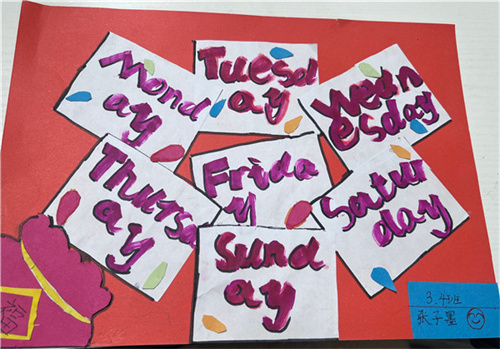 Mond
ay
Tuesd
ay
Wedn
esday
Thursd
ay
Frida
y
Satur
day
Sund
ay
3.4班
张子墨